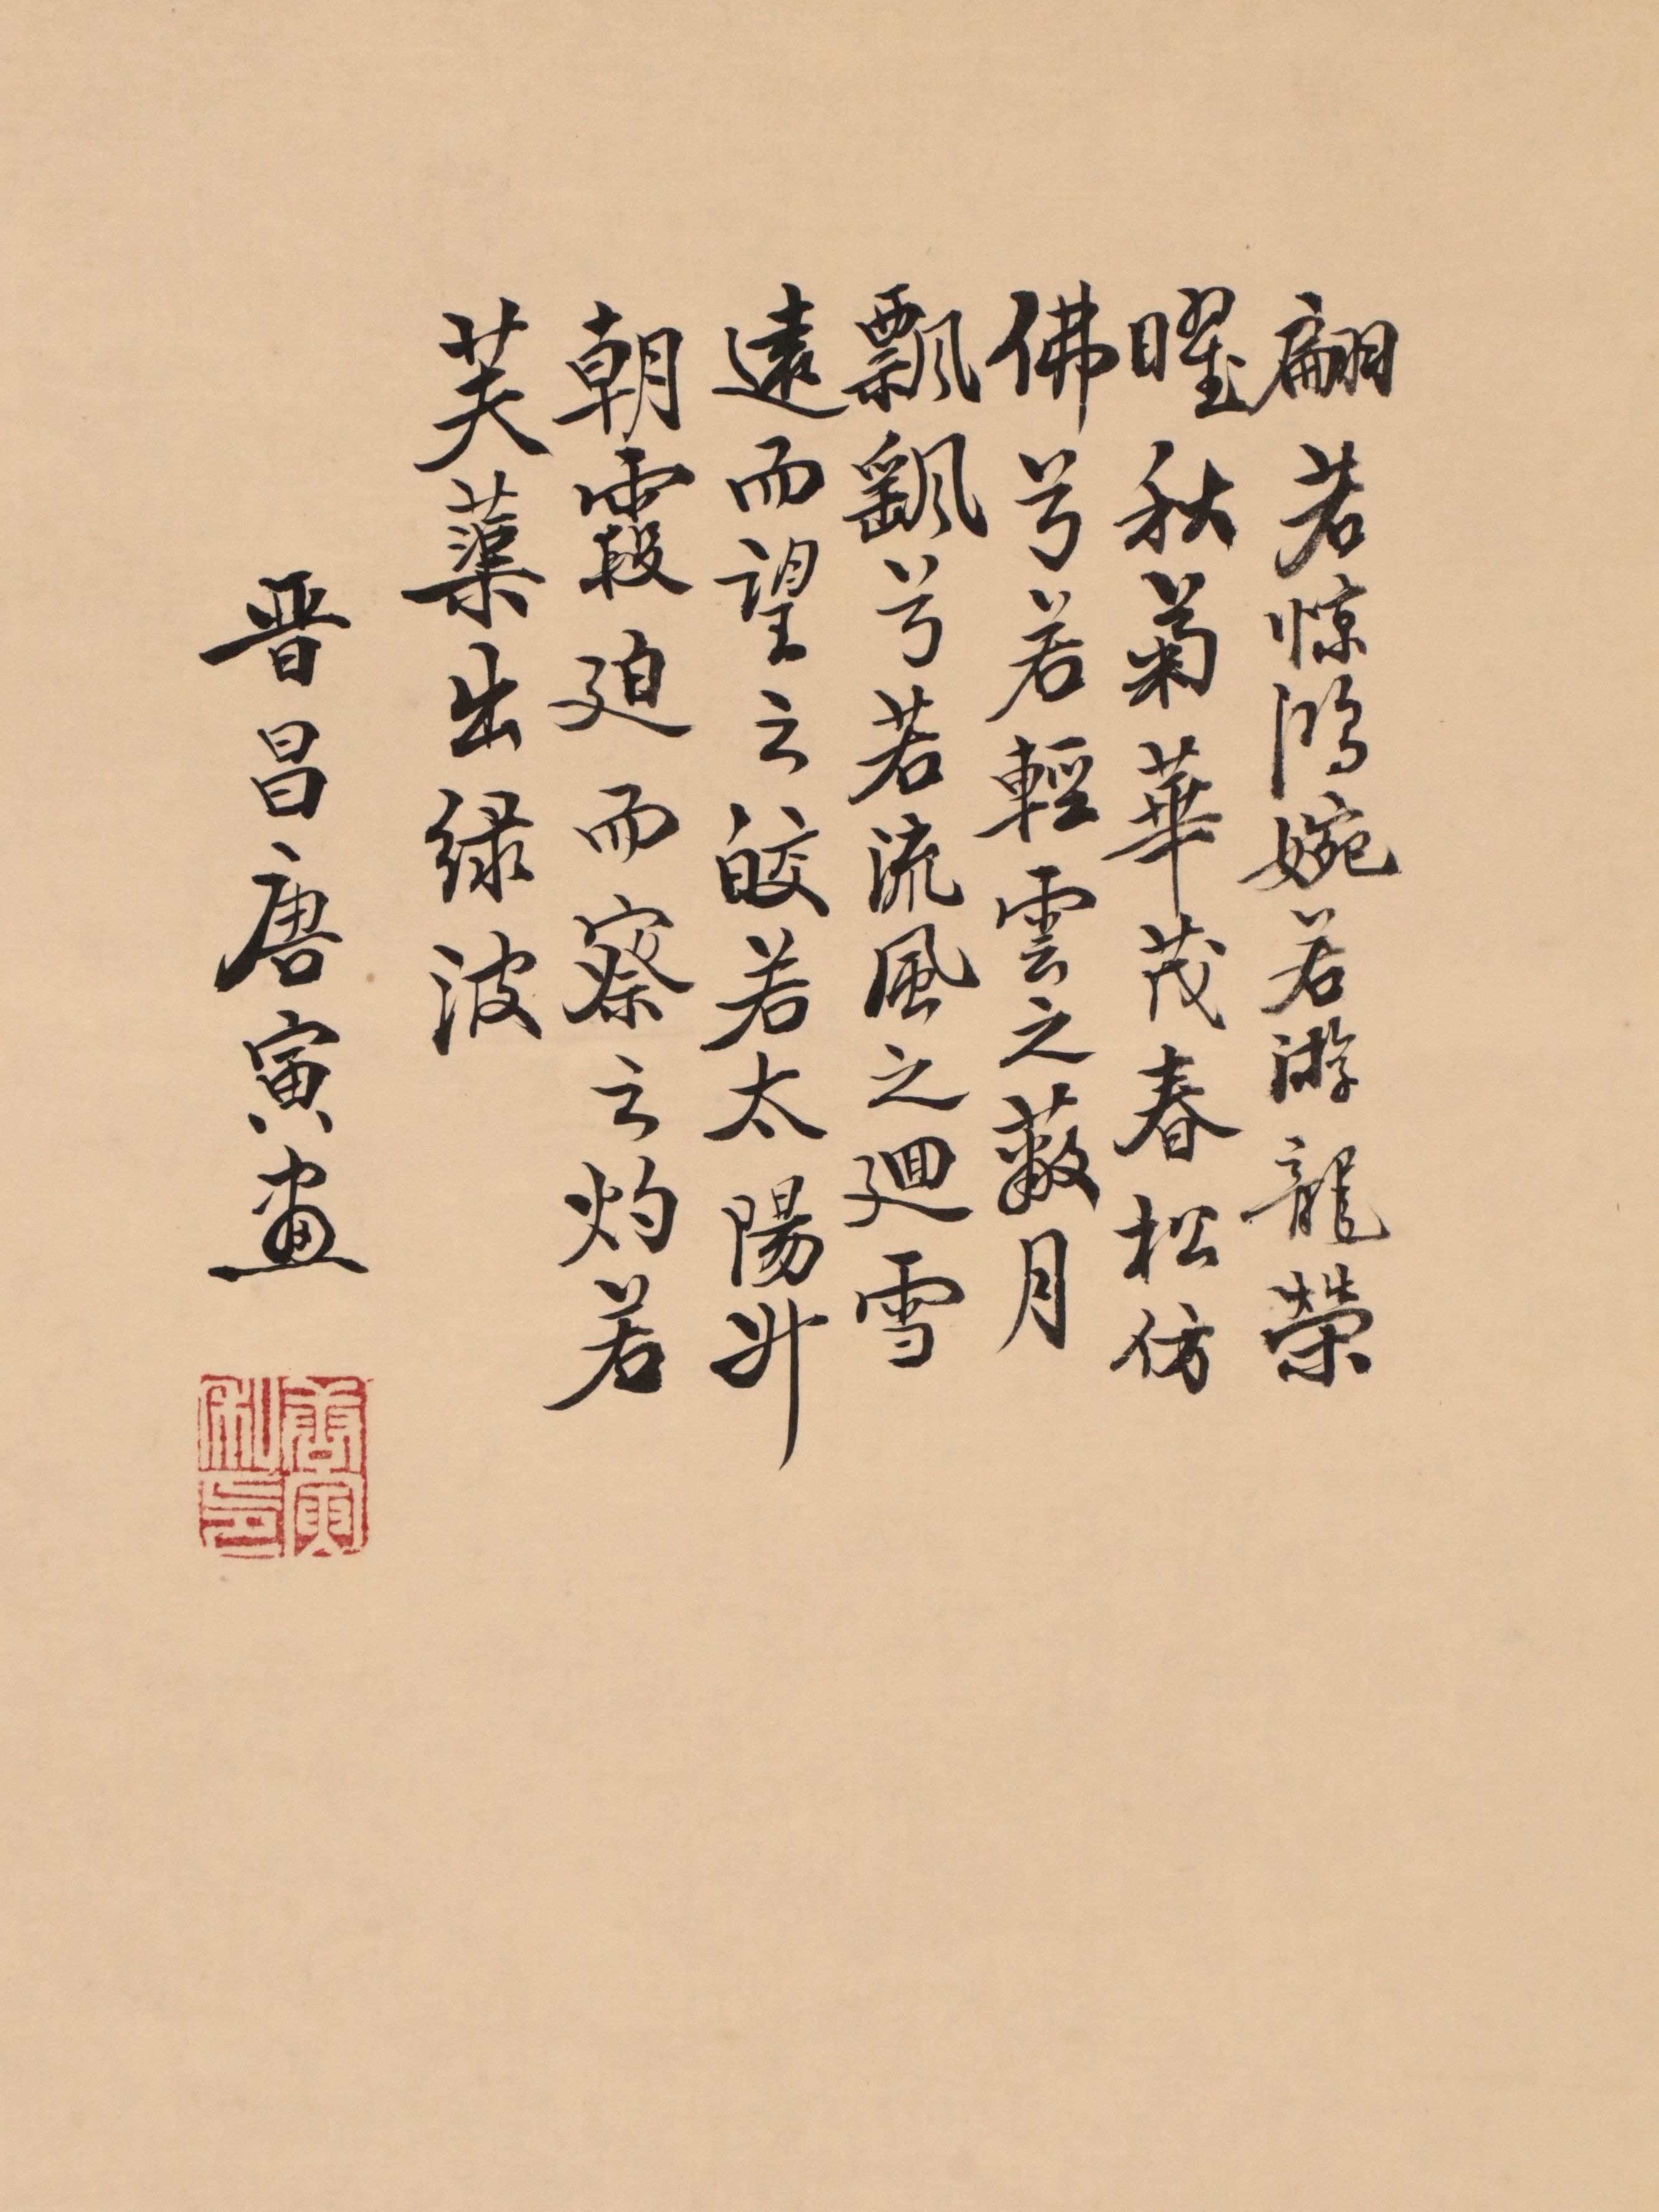 翩若惊鴻婉若游龍榮
曜秋菊華茂春松仿
佛兮若輕雲之蔽月
飄颻兮若流風之廻雪
遠而望之皎若太陽升
朝霞廹而察之灼若
芙蕖出绿波
晋昌唐寅画
唐寅私印